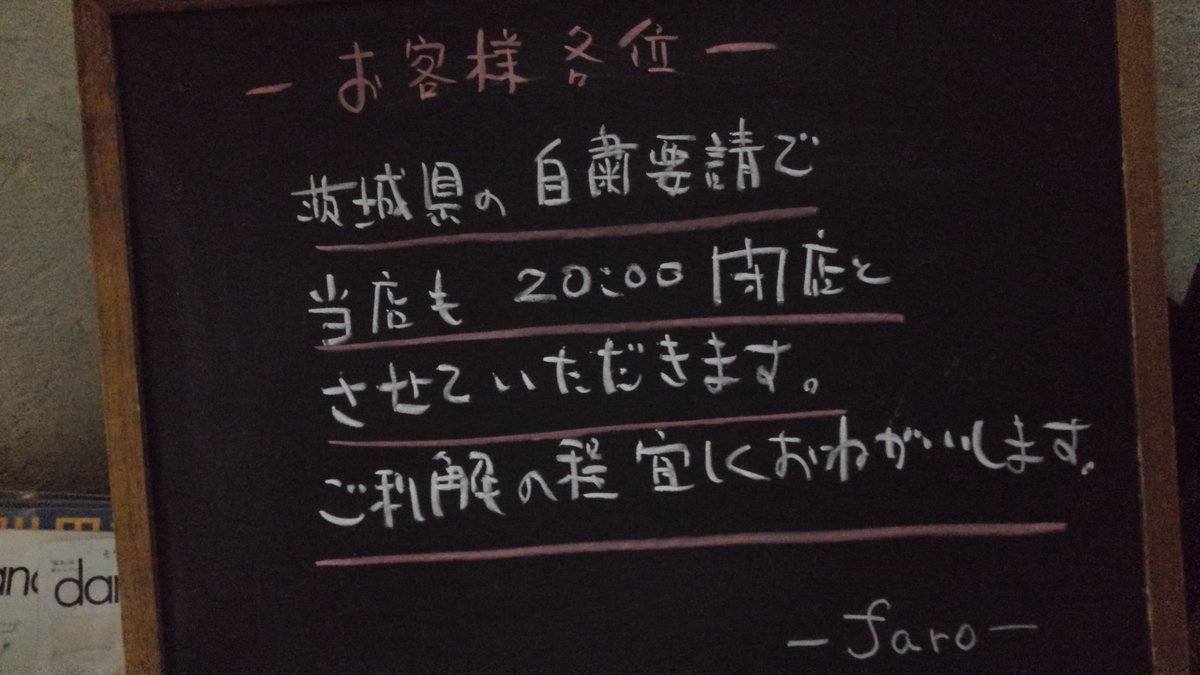 －お客様各位－
茨城県の自粛要請で
当店も 20:00 閉店と
させていただきます。
ご利解の程 宜しくおねがいします。
－faro－
dan